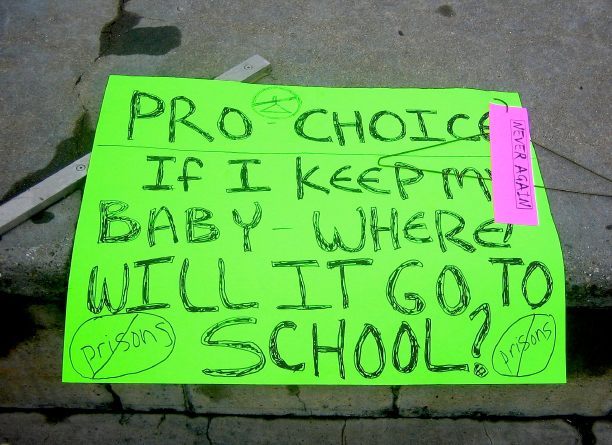 PRO - CHOICE
NEVER AGAIN
IF I KEEP MY
BABY - WHERE
WILL IT GO TO
prisons
SCHOOL?
prisons